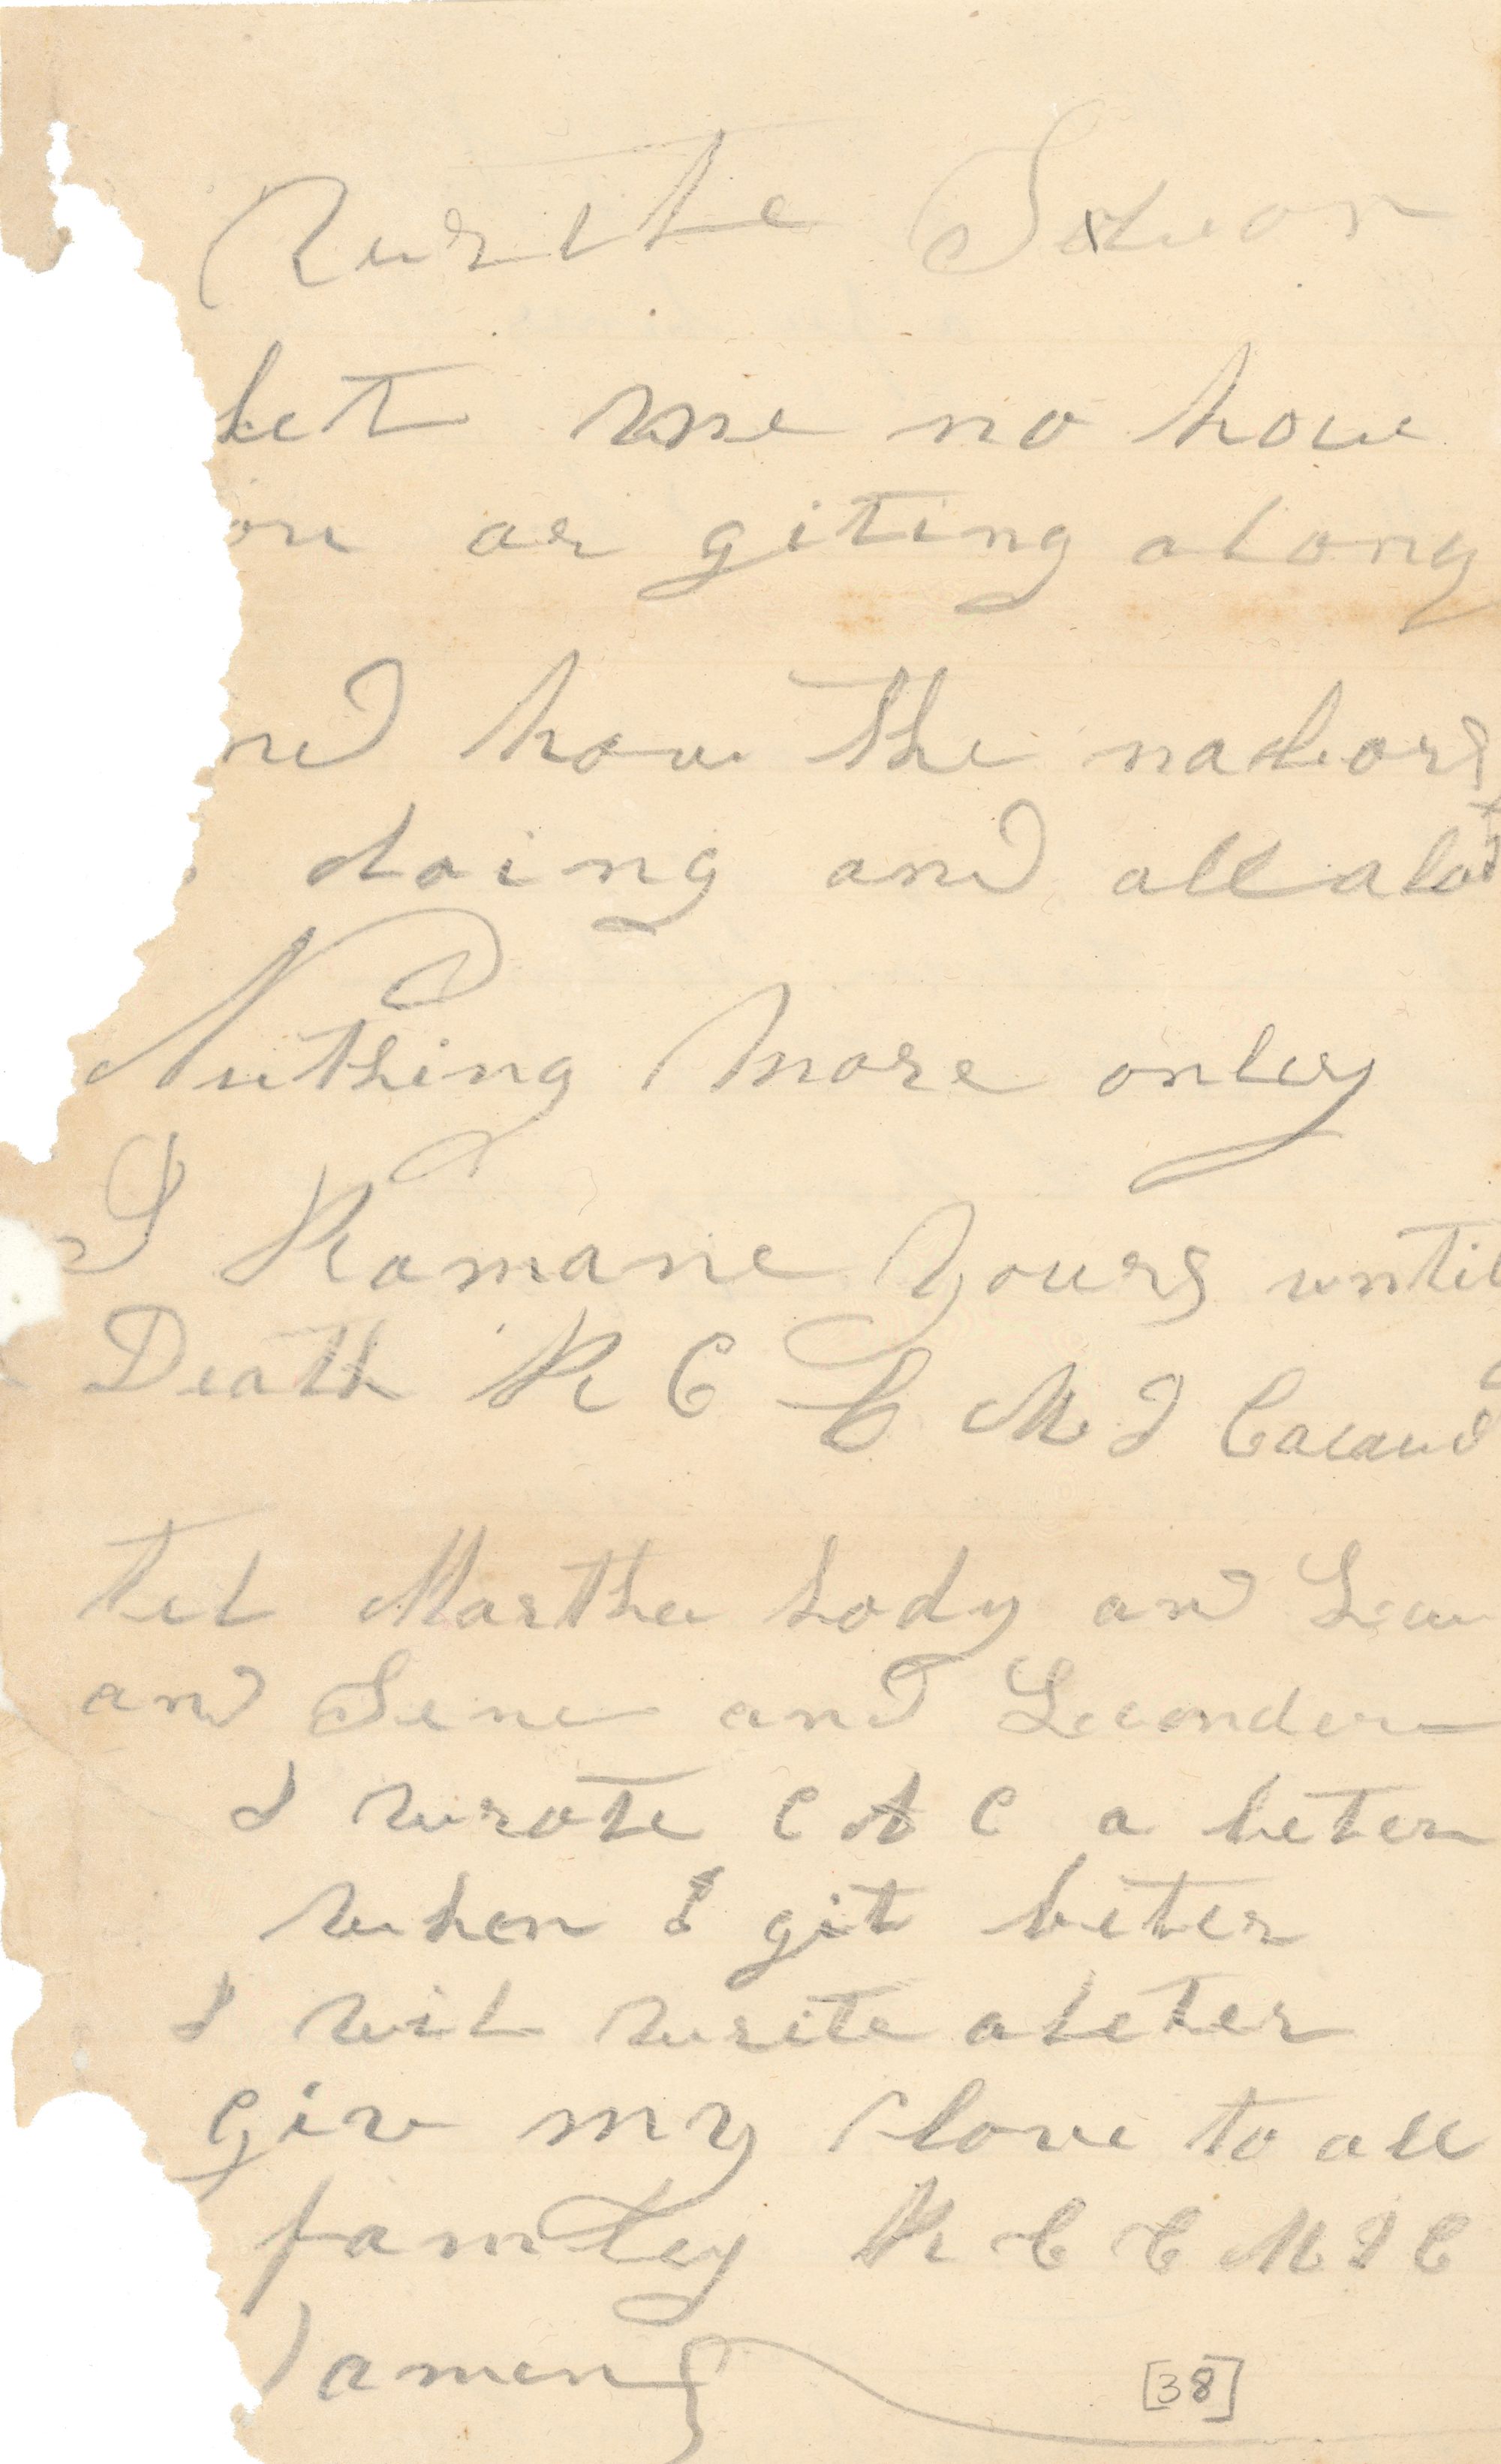 Write Soon
let me no how
ou ar giting along
nd how the nabors
doing and all
Nuthing more onley
I Remane yours until
Death R C C M J
tel Martha
and and Leander
I wrote C A C a leter
when I git beter
I wil write a leter
giv my love to all
famley R C C M J C
amen
[38]